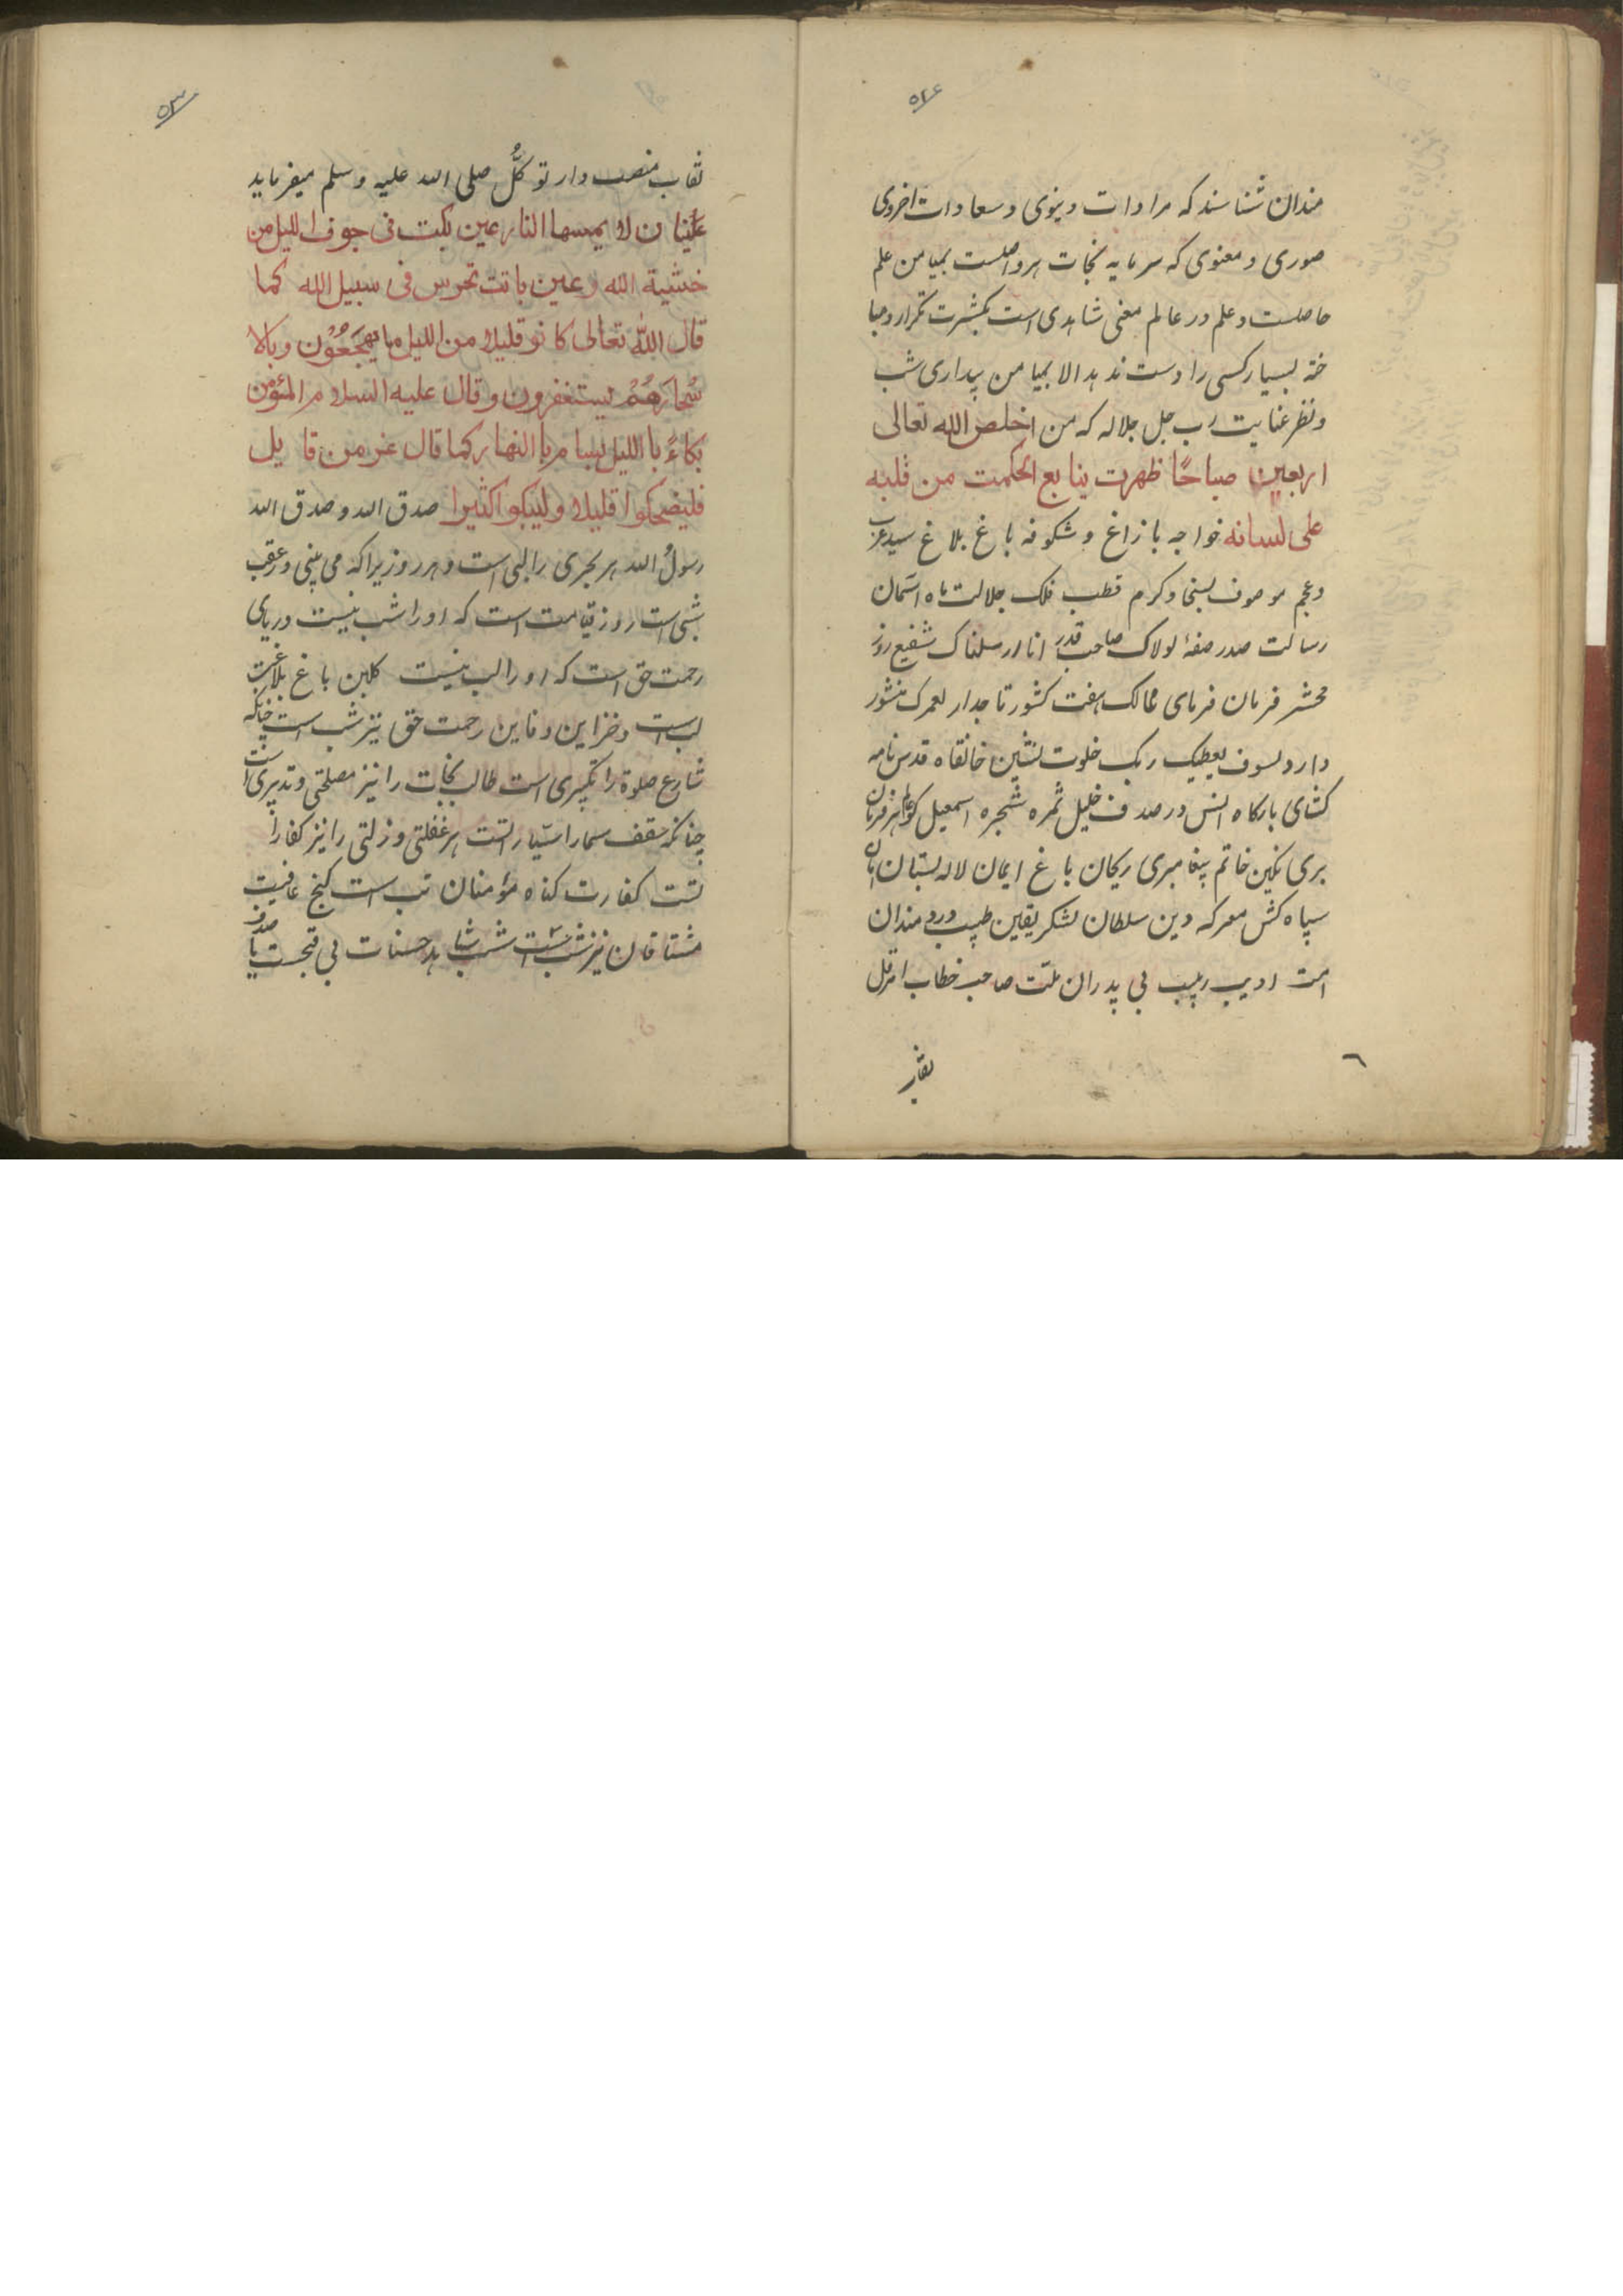 ۵۲۶
مندان شناسند که مرادات دنیوی و سعادات اخروی
صوری و معنوی که سرمایه نجات هر واصلست بمیامن علم
حاصلست و علم در عالم معنی شاهدی است بکثرت تکرار و مبا
حثه بسیار کسی را دست ندهد الا بمیامن بیداری شب
و نظر عنایت رب جل جلاله که من اخلص الله تعالی
اربعین صباحًا ظهرت ینابع الحکمت من قلبه
علی لسانه خواجه بازاغ و شکوفه باغ بلاغ سید عرب
و عجم موصوف بسخا و کرم قطب فلک جلالت ماه آسمان
رسالت صدر صفۀ لولاک صاحب قدر انا ارسلناک شفیع روز
محشر فرمان فرمای ممالک هفت کشور تاجدار لعمرک منشور
دار و لسوف یعطیک ربک خلوت نشین خانقاه قدس نامه
کشای بارکاه انس در صدف خلیل ثمره شجره اسمعیل
بری نکین خاتم پیغامبری ریحان باغ ایمان لاله بستان
سپاه کش معرکه دین سلطان لشکر یقین طبیب دردمندان
امت ادیب ربیب بی پدران ملت صاحب خطاب
نقاب
نقاب منصب دار توکُّل صلی الله علیه وسلم میفرماید
عَیْنان لا یمسها النار عین بکت فی جوف اللیل من
خشیة الله و عین باتت تحرس فی سبیل الله کما
قال الله تعالی کانو قلیلا من اللیل ما یَهْجَعُوْن و بالا
سْحارهُمْ یستغفرون و قال علیه السلام المؤمن
بکاءً بااللیل بسام باالنهار کما قال عز من قایل
فلیضحکوا قلیلا ولیبکوا کثیرا صدق الله و صدق الله
رسولُ الله هر بحری را لبی است و هر روزیرا که می بینی در عقب
شبی است روز قیامت است که او را شب نیست دریای
رحمت حق است که او را لب نیست کلبن باغ بلاغت
لب است و خزاین دفاین رحمت حق نیز شب است چنانکه
شارع صلوة را تکبیری است طالب نجات را نیز مصلحتی و تدبیری است
چنانکه سقف سما را سیّار است هر غفلتی و زلتی را نیز کفارا
تست کفارت کناه مؤمنان تب است کنج عافیت
مشتاقان نیز شب است شب شاهد حسنات بی